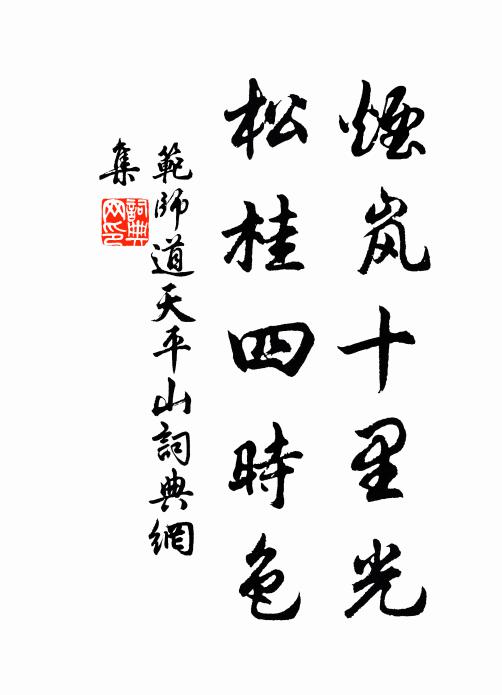 煙岚十里光
松桂四時色
範師道天平山詞典網
集
詞典网印